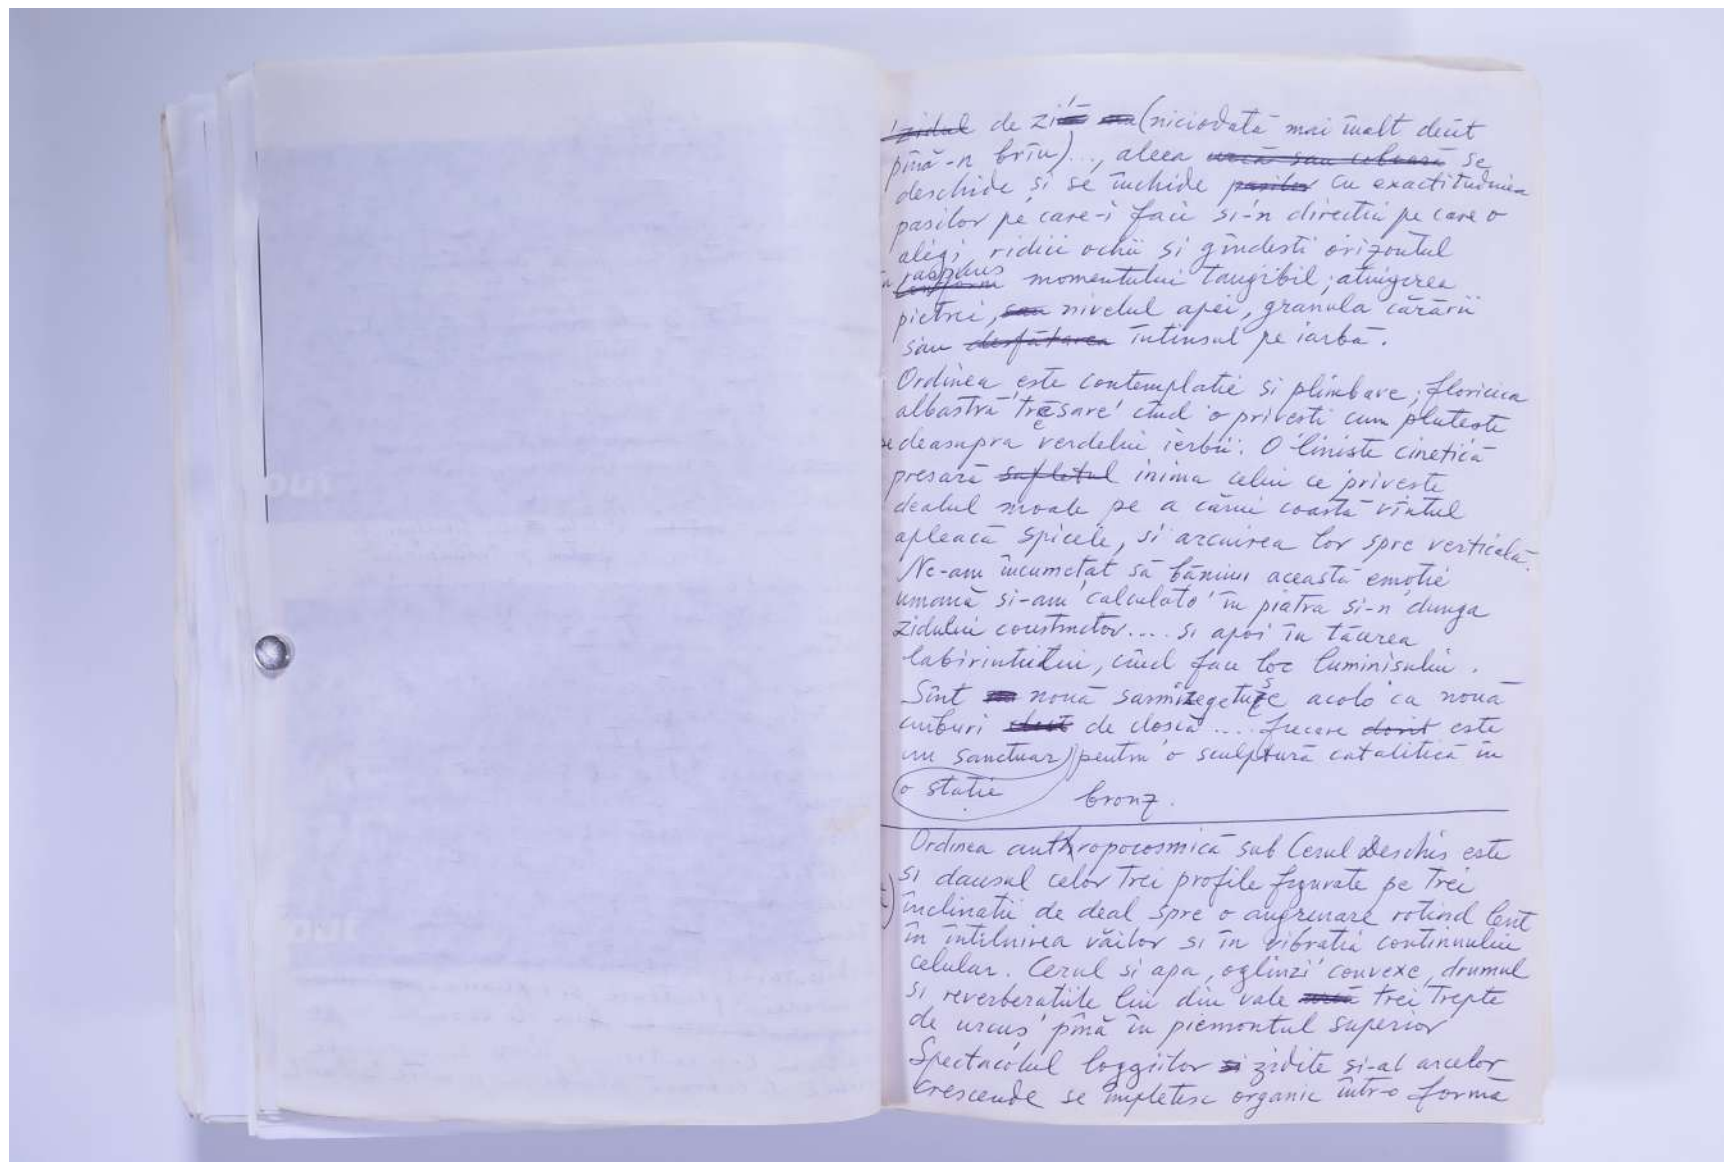 zidul de zi (niciodată mai înalt decît
pînă-n brîu)..., aleea urcă sau coboară se
deschide și se închide pașilor cu exactitudinea
pașilor pe care-i faci și-n direcția pe care o
alegi, ridici ochii și gîndești orizontul
răspuns
conform momentului tangibil; atingerea
pietrei, sau nivelul apei, granula cărării
sau desfătarea întinsul pe iarbă.
Ordinea este contemplație și plimbare; floricica
albastră tresare cînd o privești cum plutește
deasupra verdelui ierbii. O liniște cinetică
presară sufletul inima celui ce privește
dealul moale pe a cărui coastă vîntul
apleacă spicele, și arcuirea lor spre verticală.
Ne-am încumetat să bănim această emoție
umană și-am calculat-o în piatra și-n dunga
zidului constructor.... și apoi în tăierea
labirintului, cînd fac loc luminișului.
Sînt nouă sarmizegetuse acolo ca nouă
cuiburi de cloșcă.... fiecare dorit este
un sanctuar) pentru o sculptură catalitică în
o stație bronz.
Ordinea anthropocosmică sub Cerul Deschis este
și dansul celor trei profile figurate pe trei
înclinații de deal spre o angrenare rotind lent
în întîlnirea văilor și în vibrația continuului
celular. Cerul și apa, oglinzi convexe, drumul
și reverberațiile lui din vale urcă trei trepte
de urcuș pînă în piemontul superior
Spectacolul loggiilor și zidite și-al arcelor
crescende se împletesc organic într-o formă